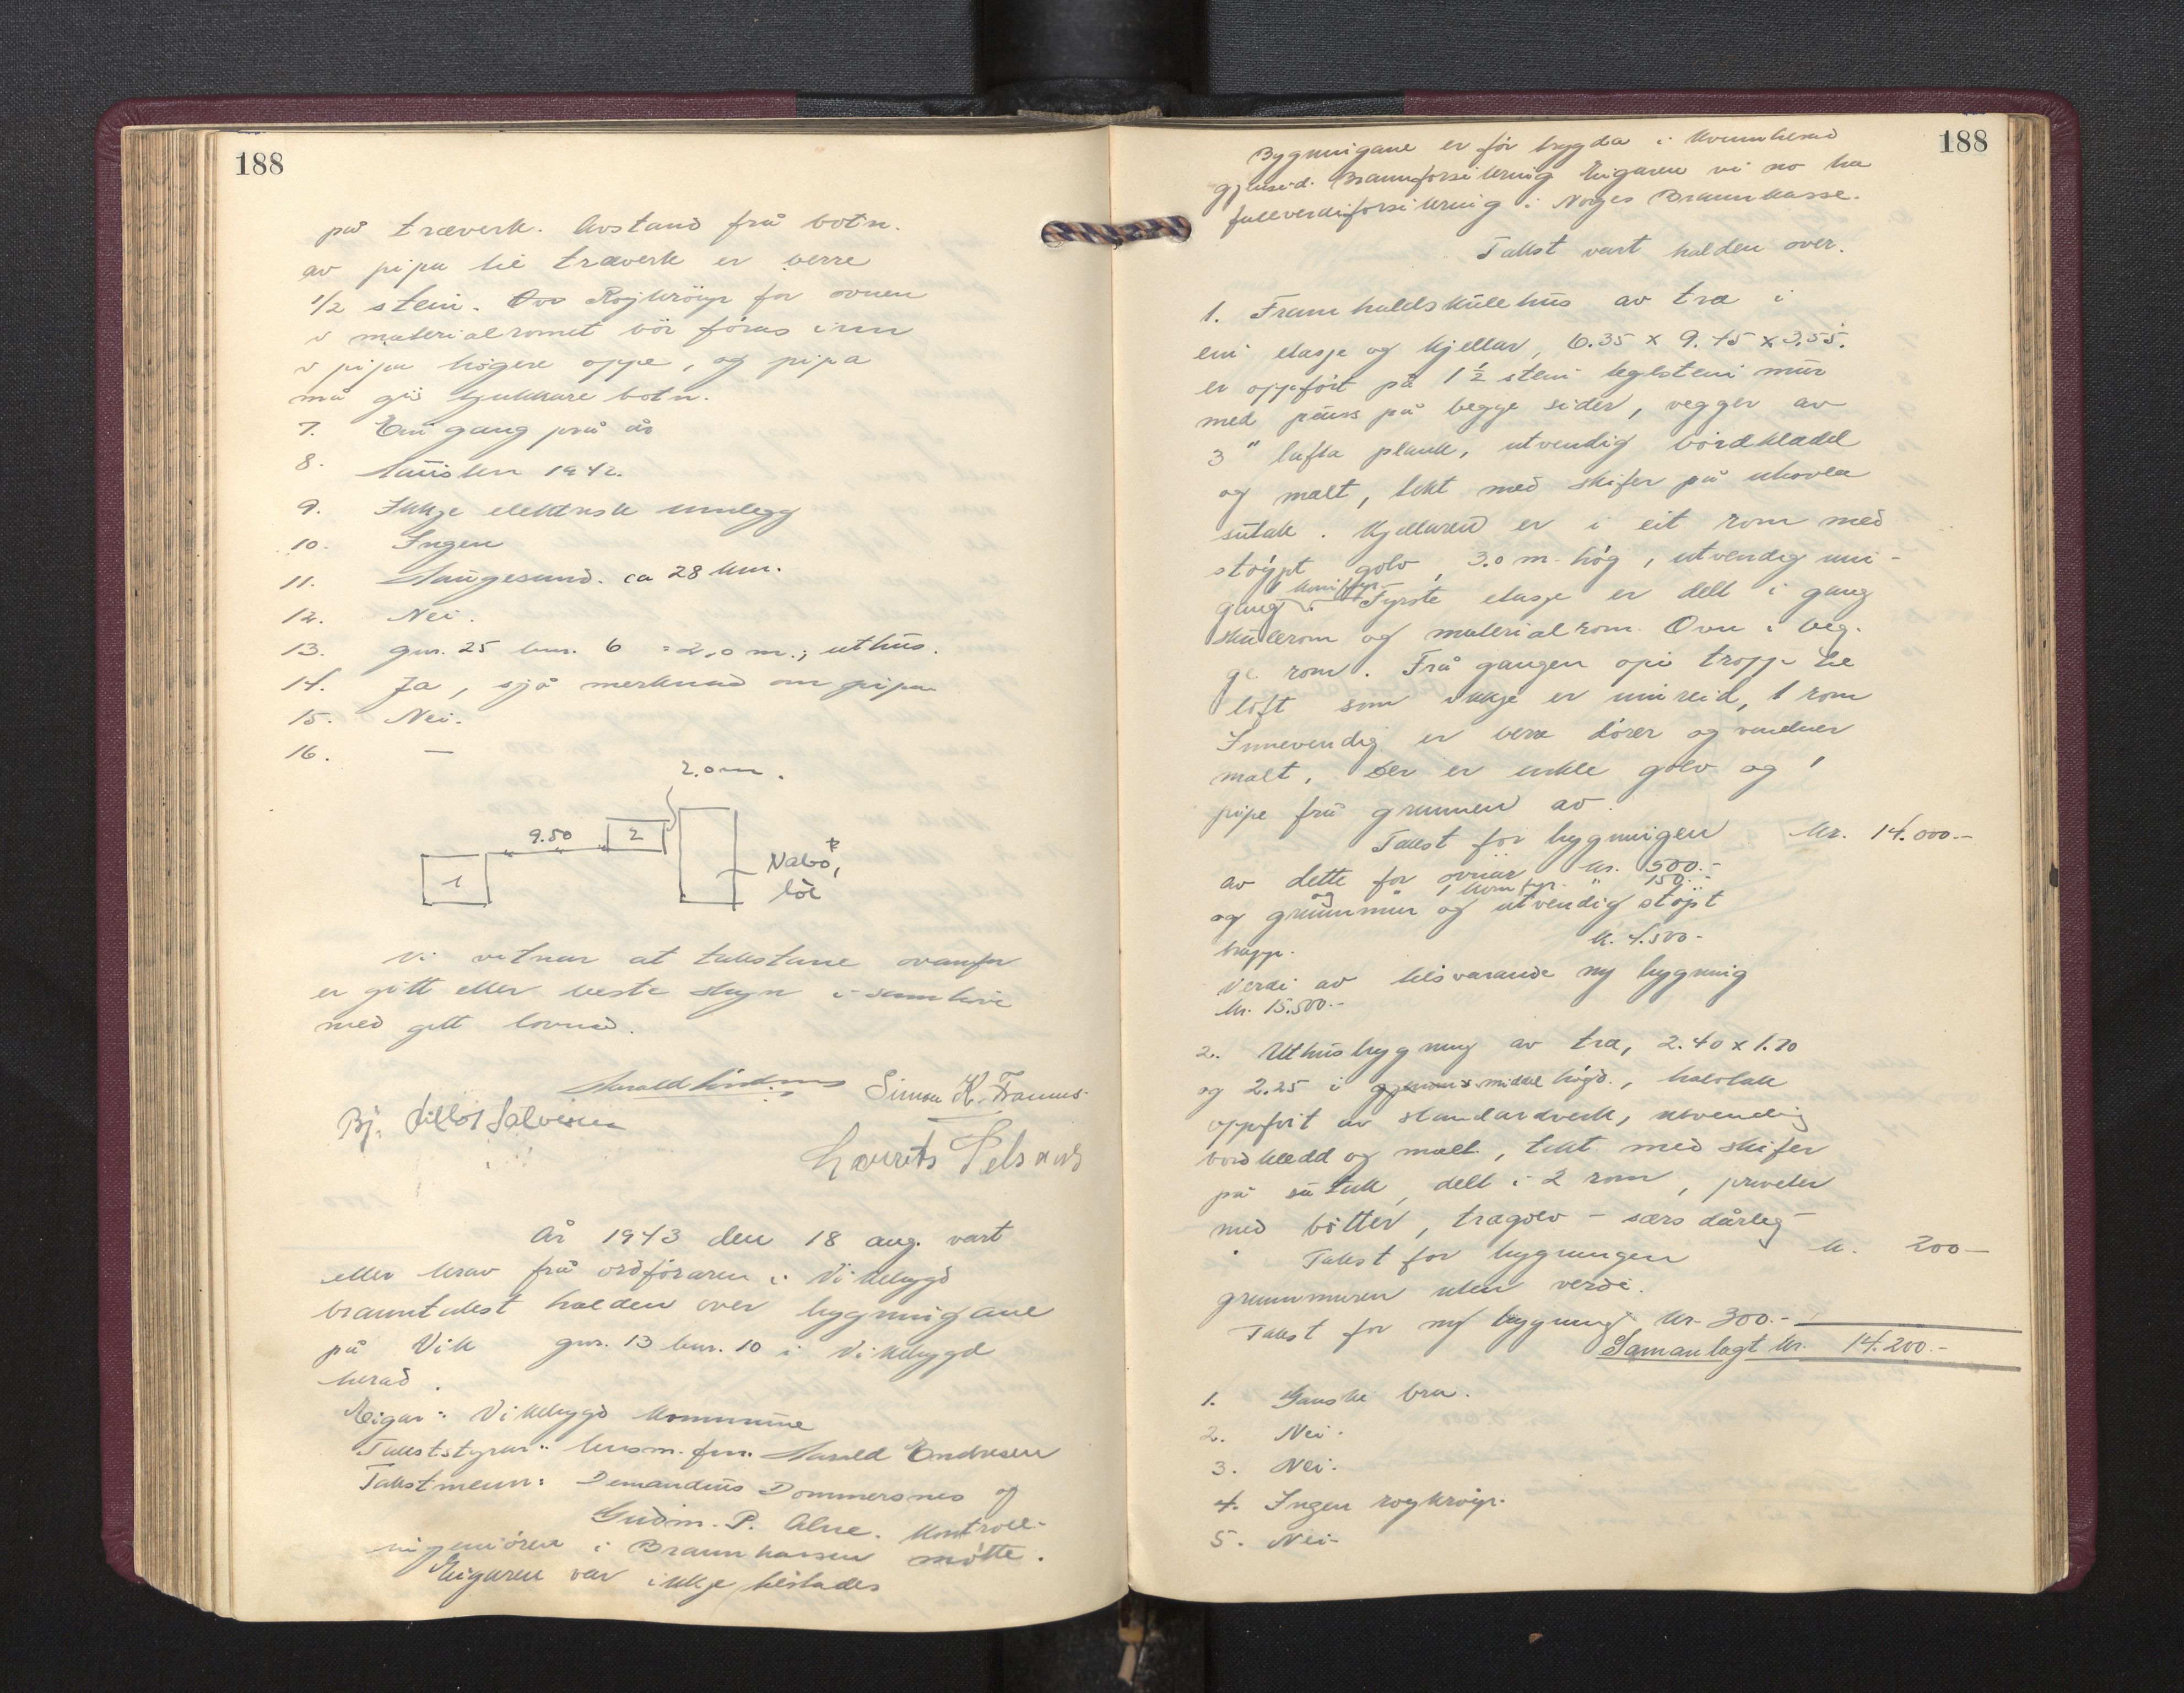 188
på træverk. Avstand frå botn.
av pipa til træverk er berre
1/2 stein. Røjkrøyr for ovnen
i materialromet bør føras inn
i pipa høgere oppe, og pipa
må gis tjukkare botn.
7. Ein gang pr. år
8. Hausten 1942.
9. Ikkje elektrisk innlegg
10. Ingen
11. Haugesund. ca 28 km.
12. Nei.
13. gnr. 25 bnr. 6 = 2,0 m.; uthus.
14. Ja, sjå merknad om pipa
15. Nei.
16. —
2.0 m.
9.50
1
2
Nabo,
löe
Vi vitnar at takstane ovanfor
er gitt etter beste skyn i samhøve
med gitt lovnad.
Simon K.
Bj. Salvesen
Laurits
År 1943 den 18 aug. vart
etter krav frå ordføraren i Vikebygd
branntakst halden over bygningane
på Vik gnr. 13 bnr. 10 i Vikebygd
herad.
Eigar: Vikebygd kommune
Takststyrar: lensm. fm. Harald Endresen
Takstmenn: Demandius Dommersnes og
Gudm. P. Alne. Kontroll-
ingeniøren i Brannkassen møtte.
Eigaren var ikkje tilstades
188
Bygningane er før trygda i Kvinnherad
gjensid. Brannforsikring Eigaren vi no ha
fullverdiforsikring i Norges Brannkasse.
Takst vart halden over.
1. Framhaldskulehus av tre i
ein etasje og kjellar, 6.35 x 9.45 x 3.55.
er oppført på 1 1/2 stein teglstein mur
med puss på begge sider, vegger av
3" lafta plank, utvendig bordkledd
og malt, tekt med skifer på uhovla
sutak. Kjellaren er i eit rom med
støypt golv, 3.0 m. høg, utvendig inn-
gang. 1 komfyr. Fyrste etasje er delt i gang
skulerom og materialrom. Ovn i beg-
ge rom. Frå gangen opi tropp te
loft som ikkje er innreid, 1 rom
Innvendig er bere dører og vinduer
malt. Der er enkle golv og 1
pipe frå grunnen av.
Takst for bygningen Kr. 14.000.-
av dette for ovnar kr. 500.-
og 1 komfyr. " 150.-
og grunnmur og utvendig støpt
trapp. k. 4.500-
Verdi av tilsvarande ny bygning
Kr. 15.500.-
2. Uthusbygning av tre, 2.40 x 1.70
og 2.25 i middel høgd., halvtak
oppført av standardverk, utvendig
bordkledd og malt, tekt med skifer
på sutak, delt i 2 rom, priveter
med bøtter, tregolv - særs dårleg-
Takst for bygningen k. 200-
grunnmuren uten verdi.
Takst for ny bygning kr. 300.-
Samanlagt kr. 14.200.-
1. Ganske bra.
2. Nei.
3. Nei.
4. Ingen røykrøyr.
5. Nei-